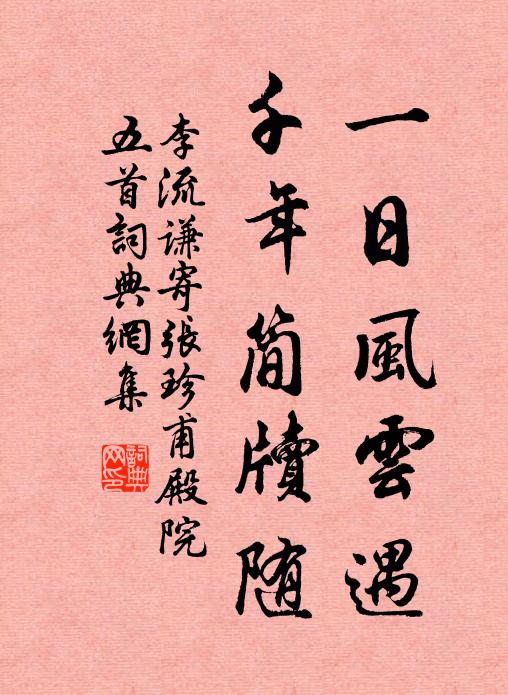 一日風雲遇
千年简牘随
李流谦寄張珍甫殿院
五首詞典網集
詞典網印